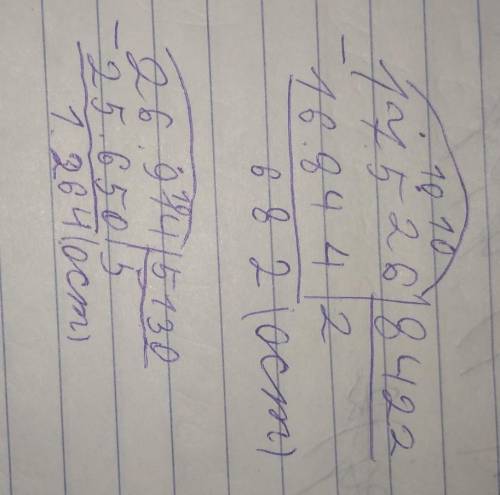 10 10
17.526 8422
- 16.844 2
682 (ост)
10
26.914 5130
- 25.650 5
1.264 (ост)